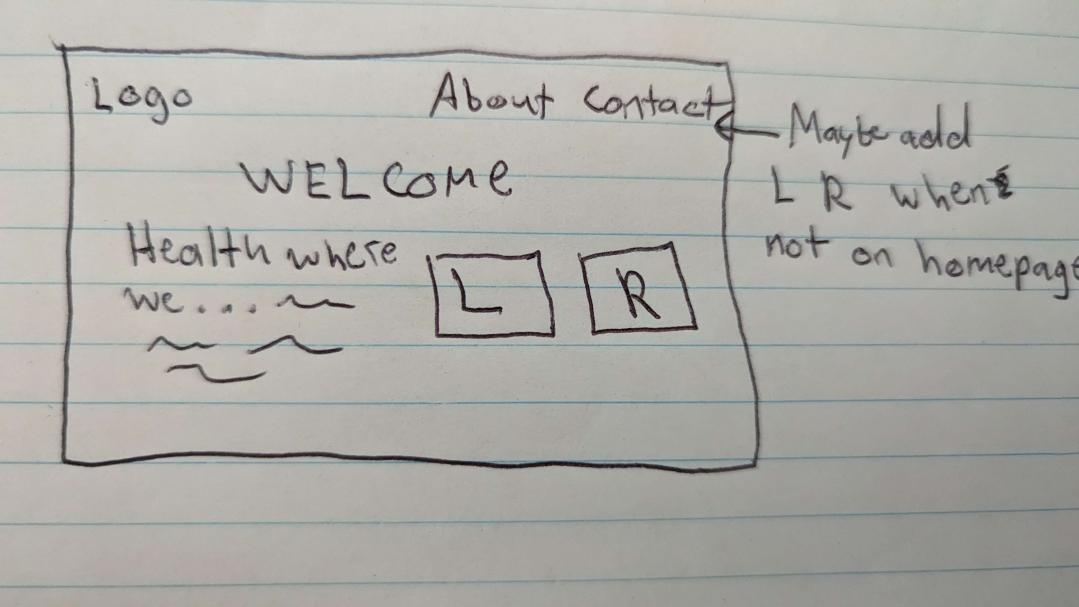 Logo
About Contact
WELCOME
Health where
we...
L
R
Maybe add
L R when
not on homepage